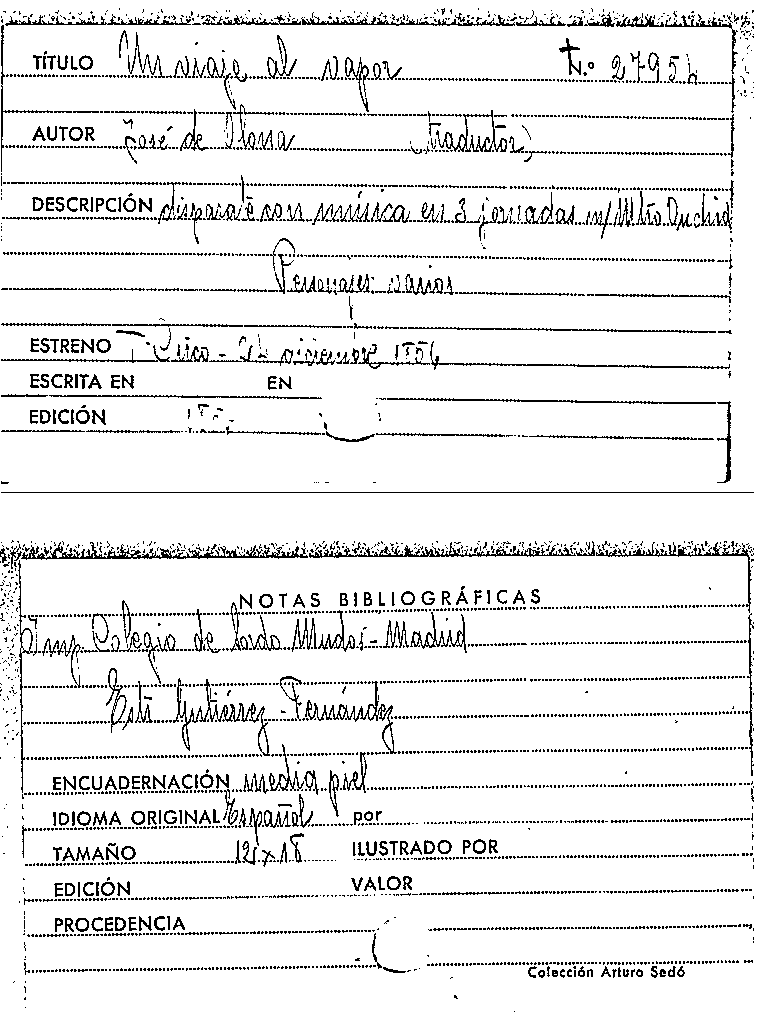 TÍTULO Un viaje al vapor N.º 27954
AUTOR José de Olona (traductor)
DESCRIPCIÓN disparate con música en 3 jornadas m/ Mtro
Personajes: varios
ESTRENO T. Circo - diciembre 1856
ESCRITA EN EN
EDICIÓN
NOTAS BIBLIOGRÁFICAS
Imp Colegio de Sordo Mudos - Madrid
Edit Gutiérrez - Fernández
ENCUADERNACIÓN media piel
IDIOMA ORIGINAL Español por
TAMAÑO 12x18 ILUSTRADO POR
EDICIÓN VALOR
PROCEDENCIA
Colección Arturo Sedó